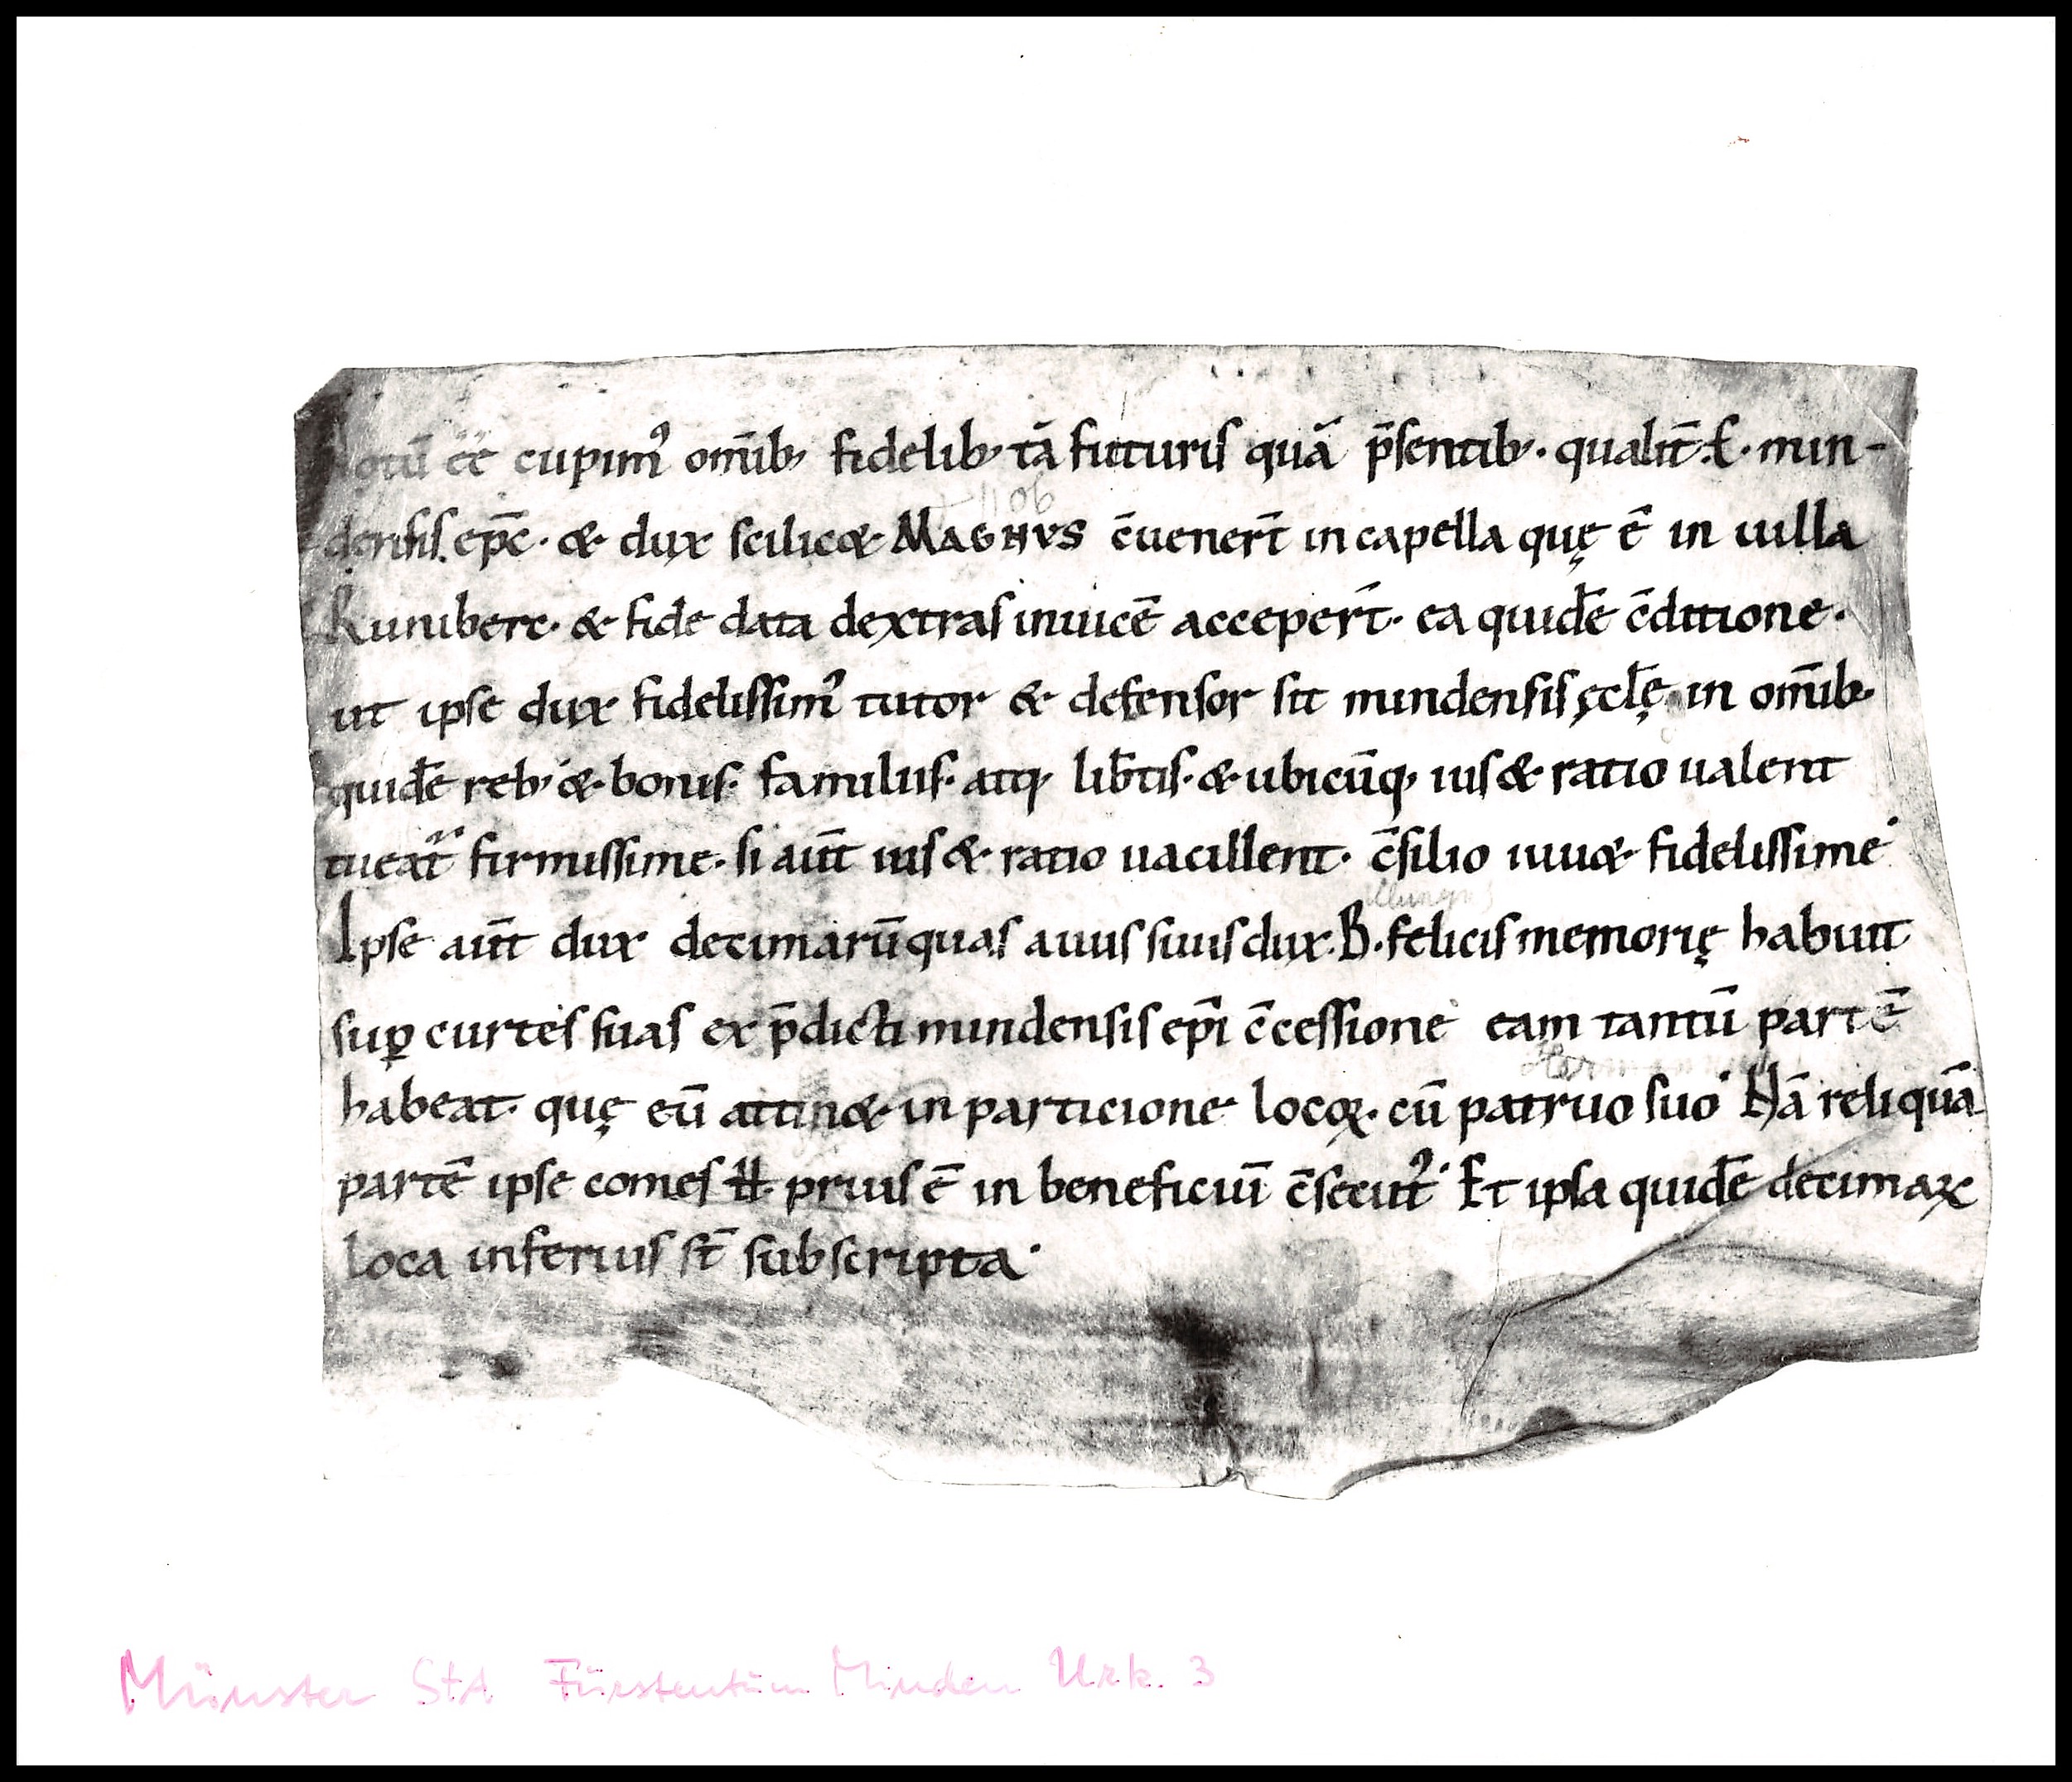 Notū ēē cupim⁹ om̄ib; fidelib; tā futuris quā p̄sentib;. qualit̄ .E. min-
† 1106
densis. ep̄c. & dux scilic& MAGNVS c̄uener̄t in capella quę ē in uilla
Kunibere. & fide data dextras inuicē acceper̄t. ea quidē c̄ditione.
ut ipse dux fidelissim⁹ tutor & defensor sit mindensis ęcl̄ę in om̄ib;
quidē reb; & bonis. familiis. atq; lib̄tis. & ubicūq; ius & ratio ualent
tueat᷑ firmissime. si aūt ius & ratio uacillent. c̄silio iuu& fidelissime.
Ipse aūt dux decimarū quas auus suus dux .B. felicis memorię habuit
sup̱ curtes suas ex p̄dicti mindensis ep̄i c̄cessione eam tantū partē
Hermann
habeat. quę eū attin& in particione locoꝝ. cū patruo suo. Nā reliquā
partē ipse comes H. prius ē in beneficiū c̄secut⁹. Et ipsa quidē decimaꝝ
loca inferius st̄ subscripta.
Münster StA Fürstentum Minden Urk. 3